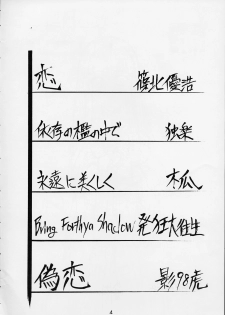 恋 篠北優浩
依存の檻の中で 独楽
永遠に美しく 木瓜
Being Forthya Shadow 発狂大往生
偽恋 影98虎
4